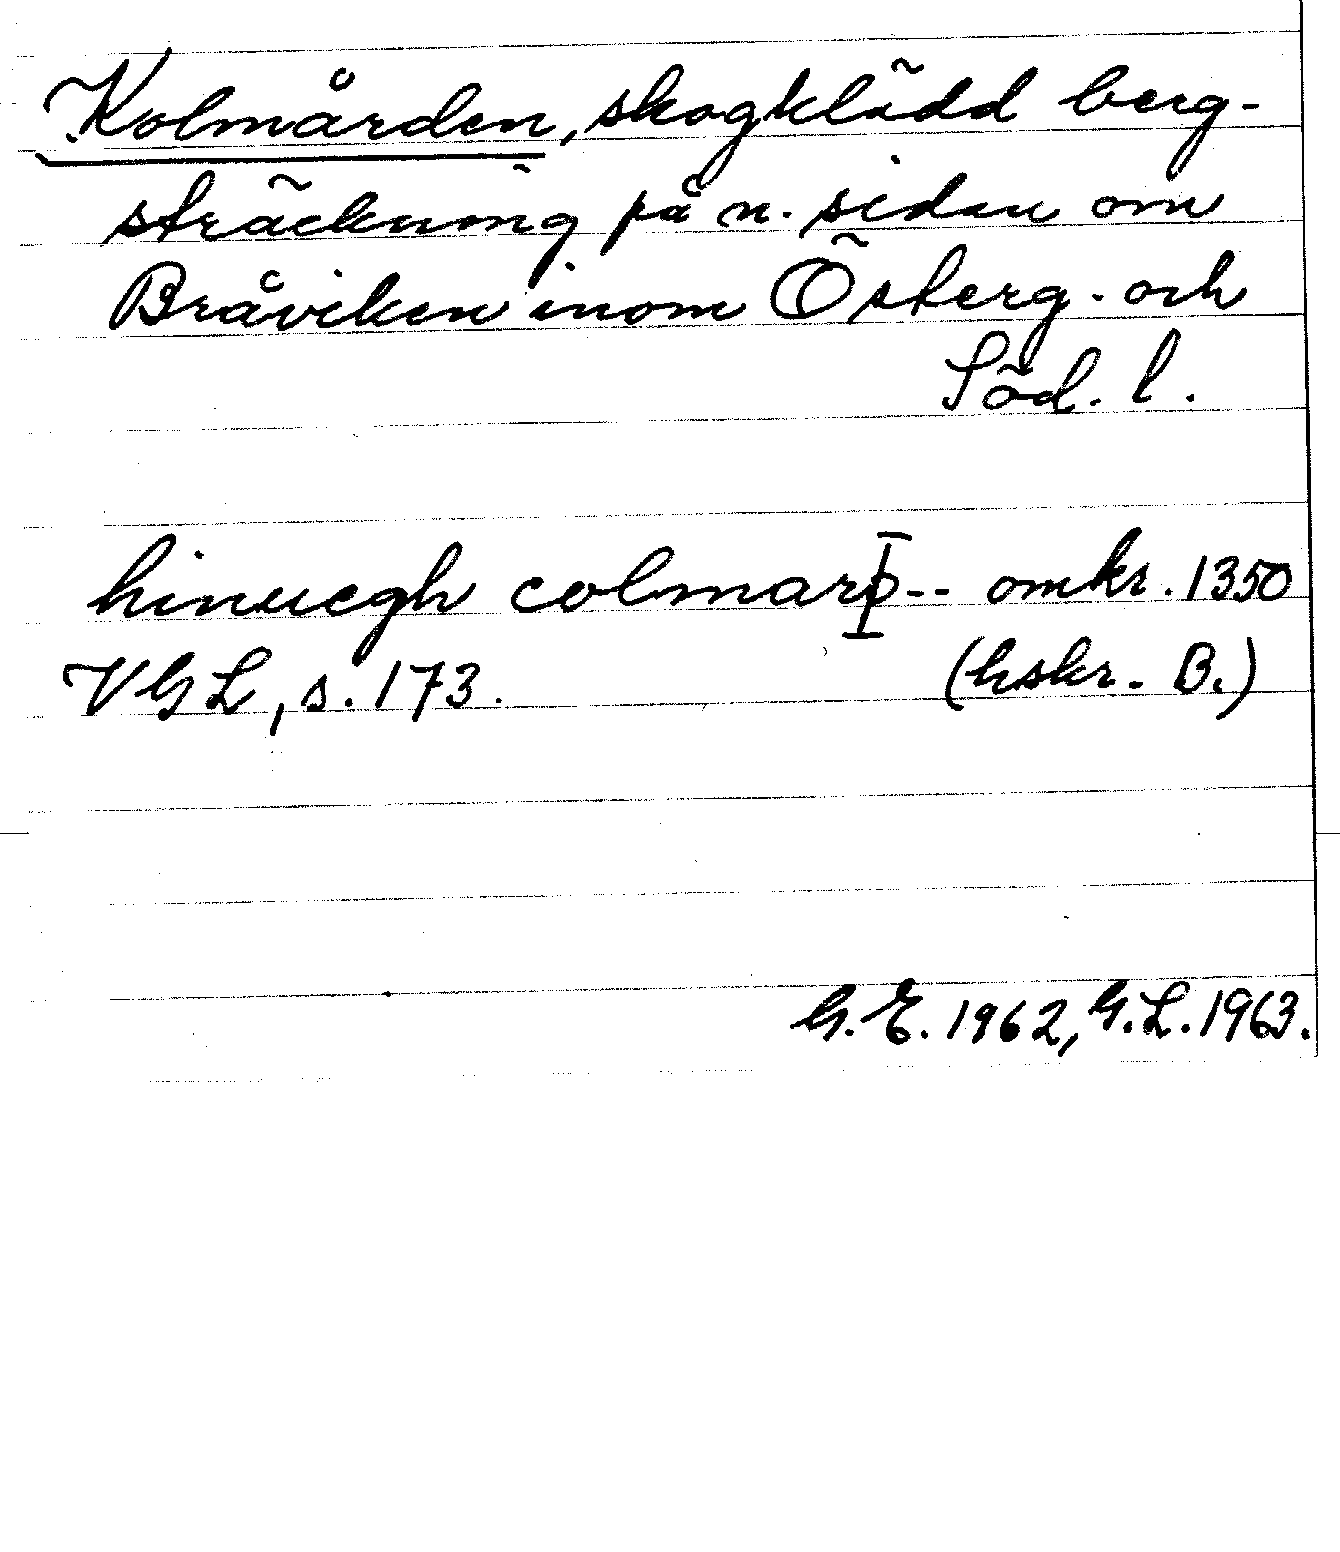 Kolmården, skogklädd berg-
sträckning på n. sidan om
Bråviken inom Österg. och
Söd. l.
hinuegh colmarþ-- omkr. 1350
VGL, s. 173. (hskr. B.)
G.E. 1962, G.L. 1963.